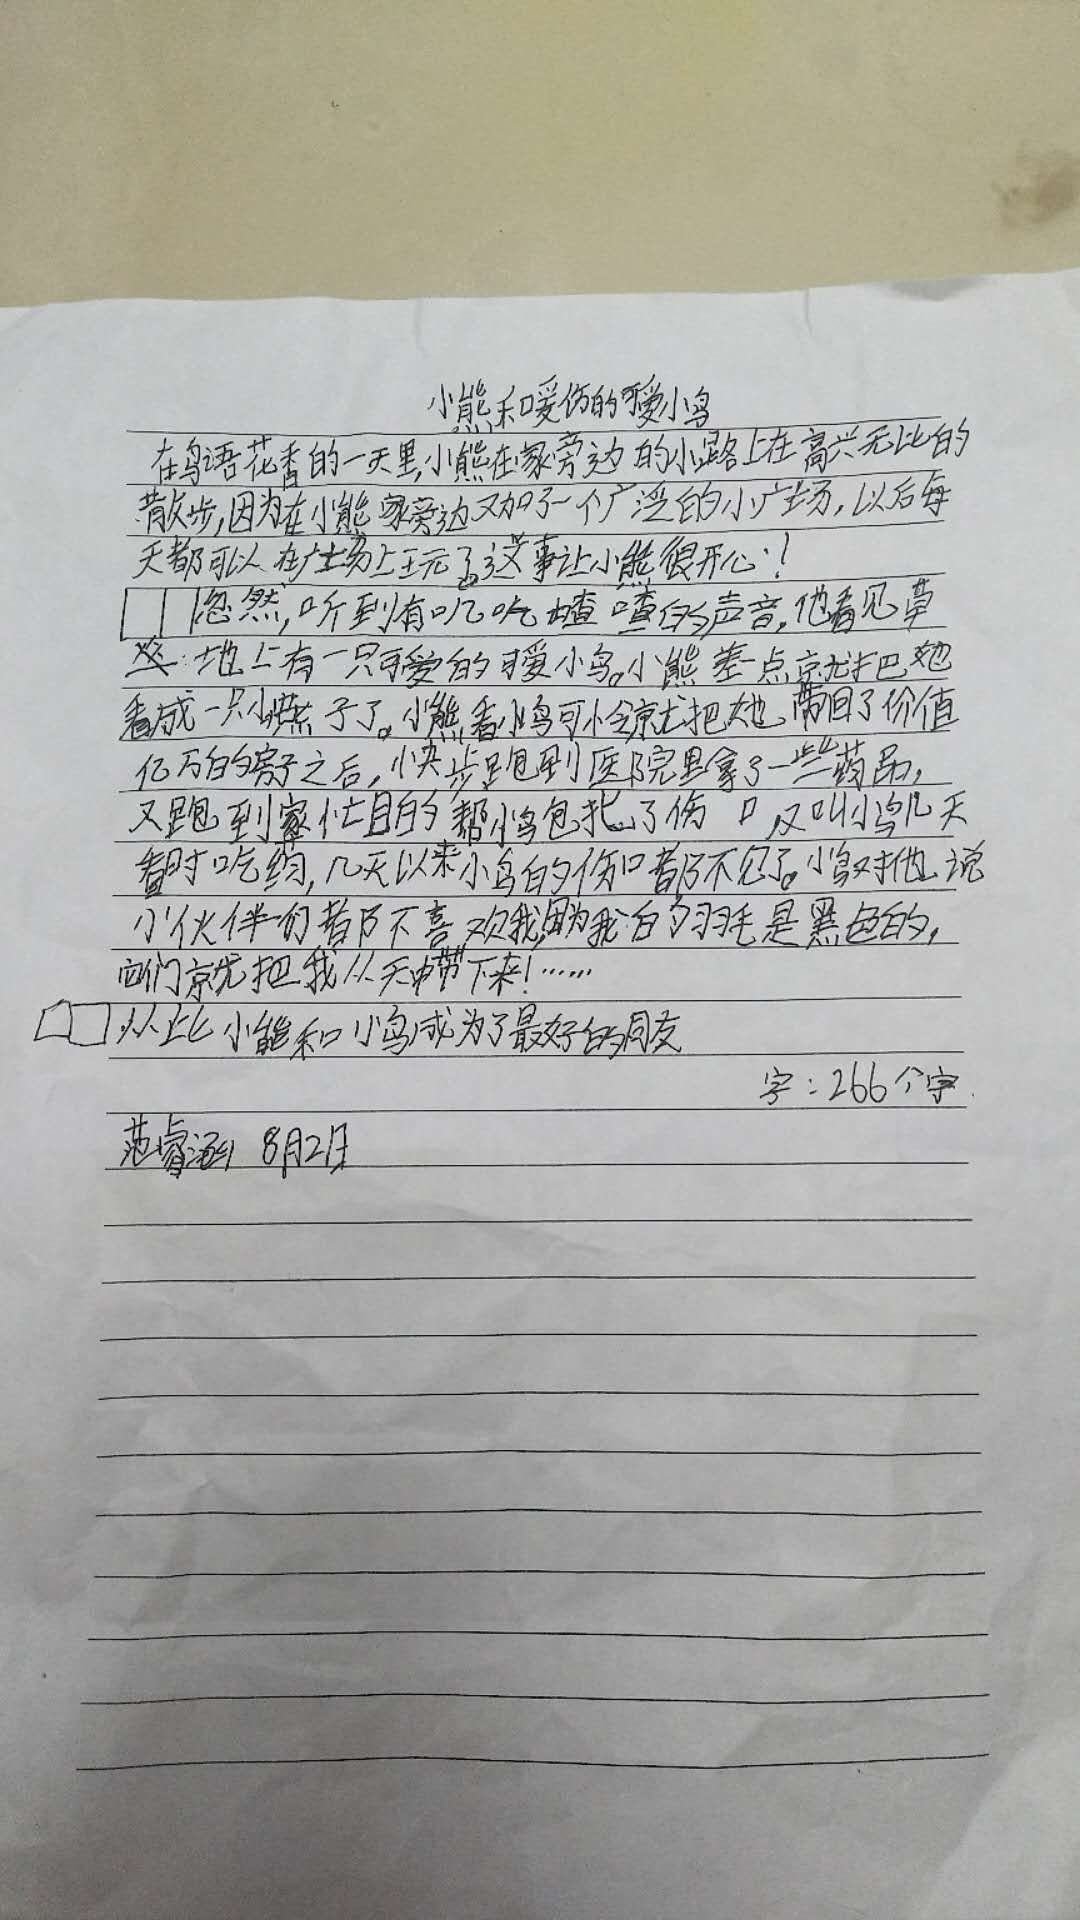 小熊和受伤的可爱小鸟
在鸟语花香的一天里,小熊在家旁边的小路上在高兴无比的
散步,因为在小熊家旁边又加了一个广泛的小广场,以后每
天都可以在广场上玩了。这事让小熊很开心!
忽然,听到有叽叽喳喳的声音,他看见草
地上有一只可爱的可爱小鸟。小熊差一点就把她
看成一只小燕子了。小熊看小鸟可怜就把她带回了价值
亿万的房子之后,快步跑到医院里拿了一些药品,
又跑到家忙目的帮小鸟包扎了伤口,又叫小鸟几天
看时吃药,几天以来小鸟的伤口都不见了。小鸟对他说
小伙伴们都不喜欢我,因为我的羽毛是黑色的,
它们就把我从天中带下来!……
从此小熊和小鸟成为了最好的朋友
字:266个字
范睿涵 8月2日